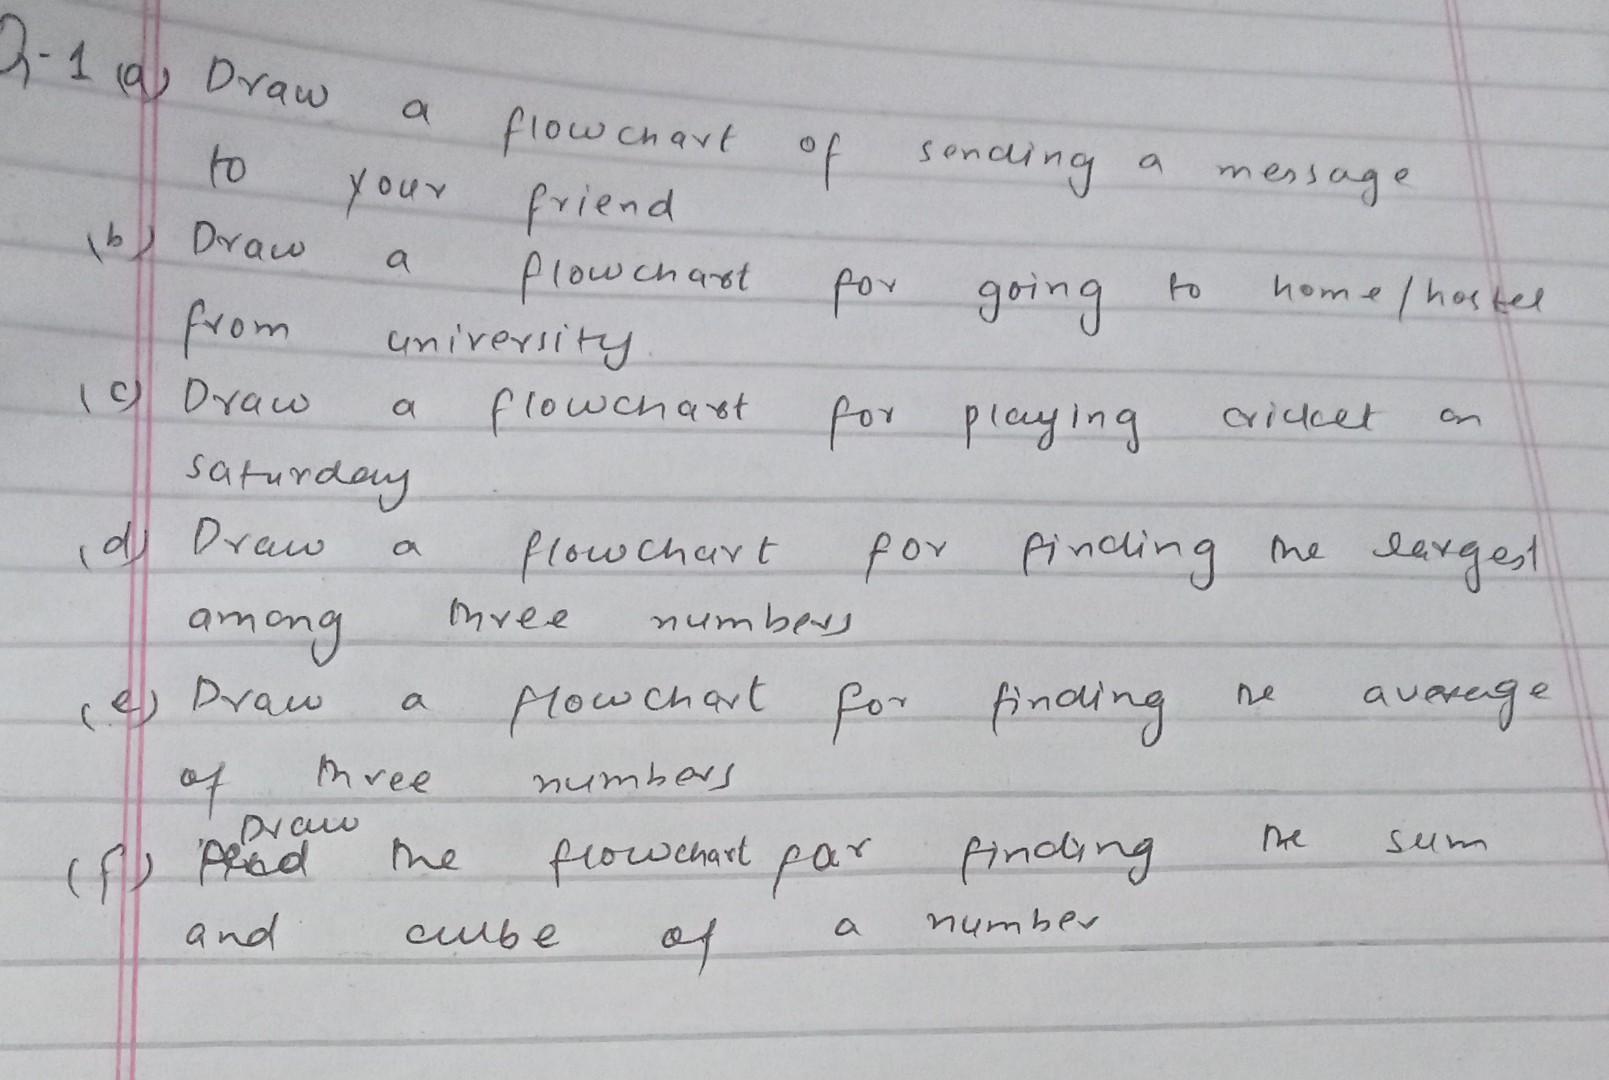 Q-1 (a) Draw a flowchart of sending a message
to your friend
(b) Draw a flowchart for going to home/hostel
from university.
(c) Draw a flowchart for playing cricket on
saturday
(d) Draw a flowchart for finding the largest
among three numbers
(e) Draw a flowchart for finding the average
of three numbers
Draw
(f) the flowchart for finding the sum
and cube of a number